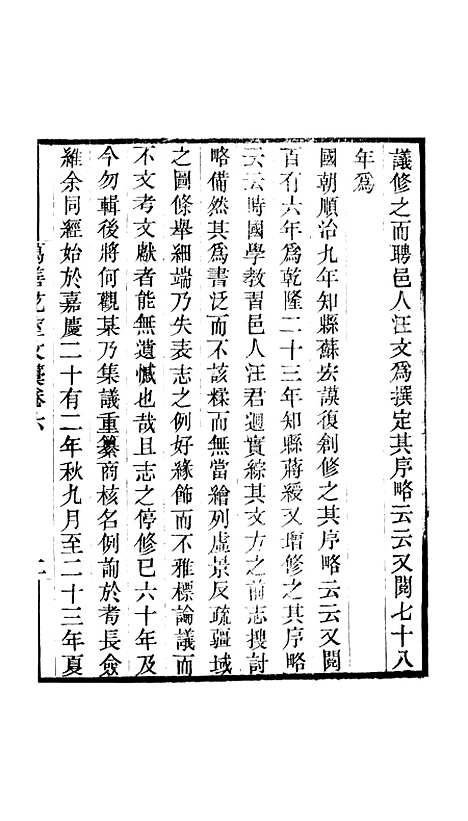 議修之而聘邑人汪文為撰定其序略云云又閱七十八
年為
國朝順治九年知縣蘇宏謨復創修之其序略云云又閱
百有六年為乾隆二十三年知縣蔣綬又增修之其序略
云云時國學教習邑人汪君迴實綜其文方之前志搜討
略備然其為書泛而不該樣而無當繪列虛景反疏疆域
之圖條舉細端乃失表志之例好緣飾而不雅標論議而
不文考文獻者能無遺憾也哉且志之停修已六十年及
今勿輯後將何觀某乃集議重纂商核名例詢於耇長僉
維余同經始於嘉慶二十有二年秋九月至二十三年夏
萬善花室文藁卷六
二